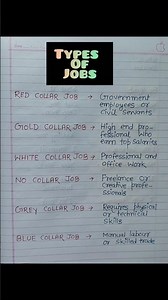 TYPES
OF
JOBS
RED COLLAR JOB → Government
employees or
civil servants
GOLD COLLAR JOB → High end pro-
fessional who
earn top salaries
WHITE COLLAR JOB → Professional and
office work
NO COLLAR JOB → Freelance or
creative profe-
ssionals
GREY COLLAR JOB → Requires physical
or technical
skills
BLUE COLLAR JOB → Manual labour
or skilled trade